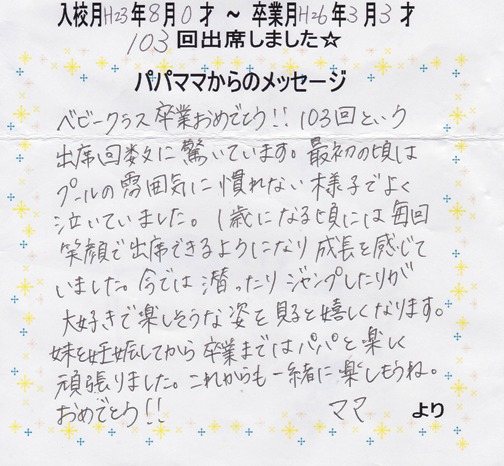 入校月H23年8月0才 ～ 卒業月H26年3月3才
103回出席しました☆
パパママからのメッセージ
ベビークラス卒業おめでとう!! 103回という
出席回数に驚いています。最初の頃は
プールの雰囲気に慣れない様子でよく
泣いていました。1歳になる頃には毎回
笑顔で出席できるようになり成長を感じて
いました。今では潜ったりジャンプしたりが
大好きで楽しそうな姿を見ると嬉しくなります。
妹を妊娠してから卒業まではパパと楽しく
頑張りました。これからも一緒に楽しもうね。
おめでとう!! ママ より